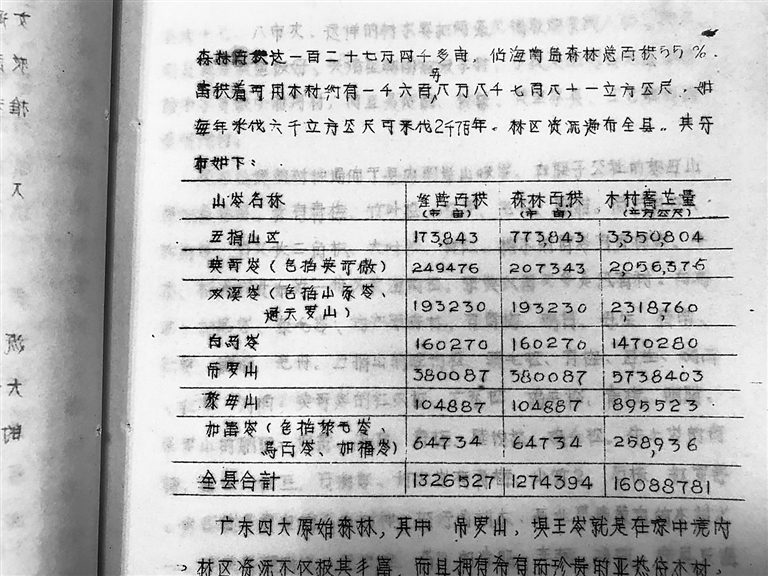 森林面积达一百二十七万四千多亩，佔海南岛森林总面积55％.
蓄积着可用木材约有一千六百另八万八千七百八十一立方公尺．如
每年采伐六千立方公尺可采伐2千 年．林区资源遍布全县．其分
布如下：
山岺名称 面积（市亩） 森林面积（市亩） 木材蓄 量（立方公尺）
五指山区 173,843 773,843 3,350,804
英哥岺（包括英哥 ） 249476 207343 2,056,375
双溪岺（包括山 岺、
通天罗山） 193230 193230 2,318,760
白马岺 160270 160270 1470280
吊罗山 380087 380087 5738403
黎母山 104887 104887 895523
加 岺（包括黎毛岺、
馬百岺、加福岺） 64734 64734 258,936
全县合計 1326527 1274394 16088781
广东四大原始森林，其中 吊罗山，埧王岺就是在琼中境内
林区资源不仅极其丰富，而且拥有希有而珍贵的亚热带木材，